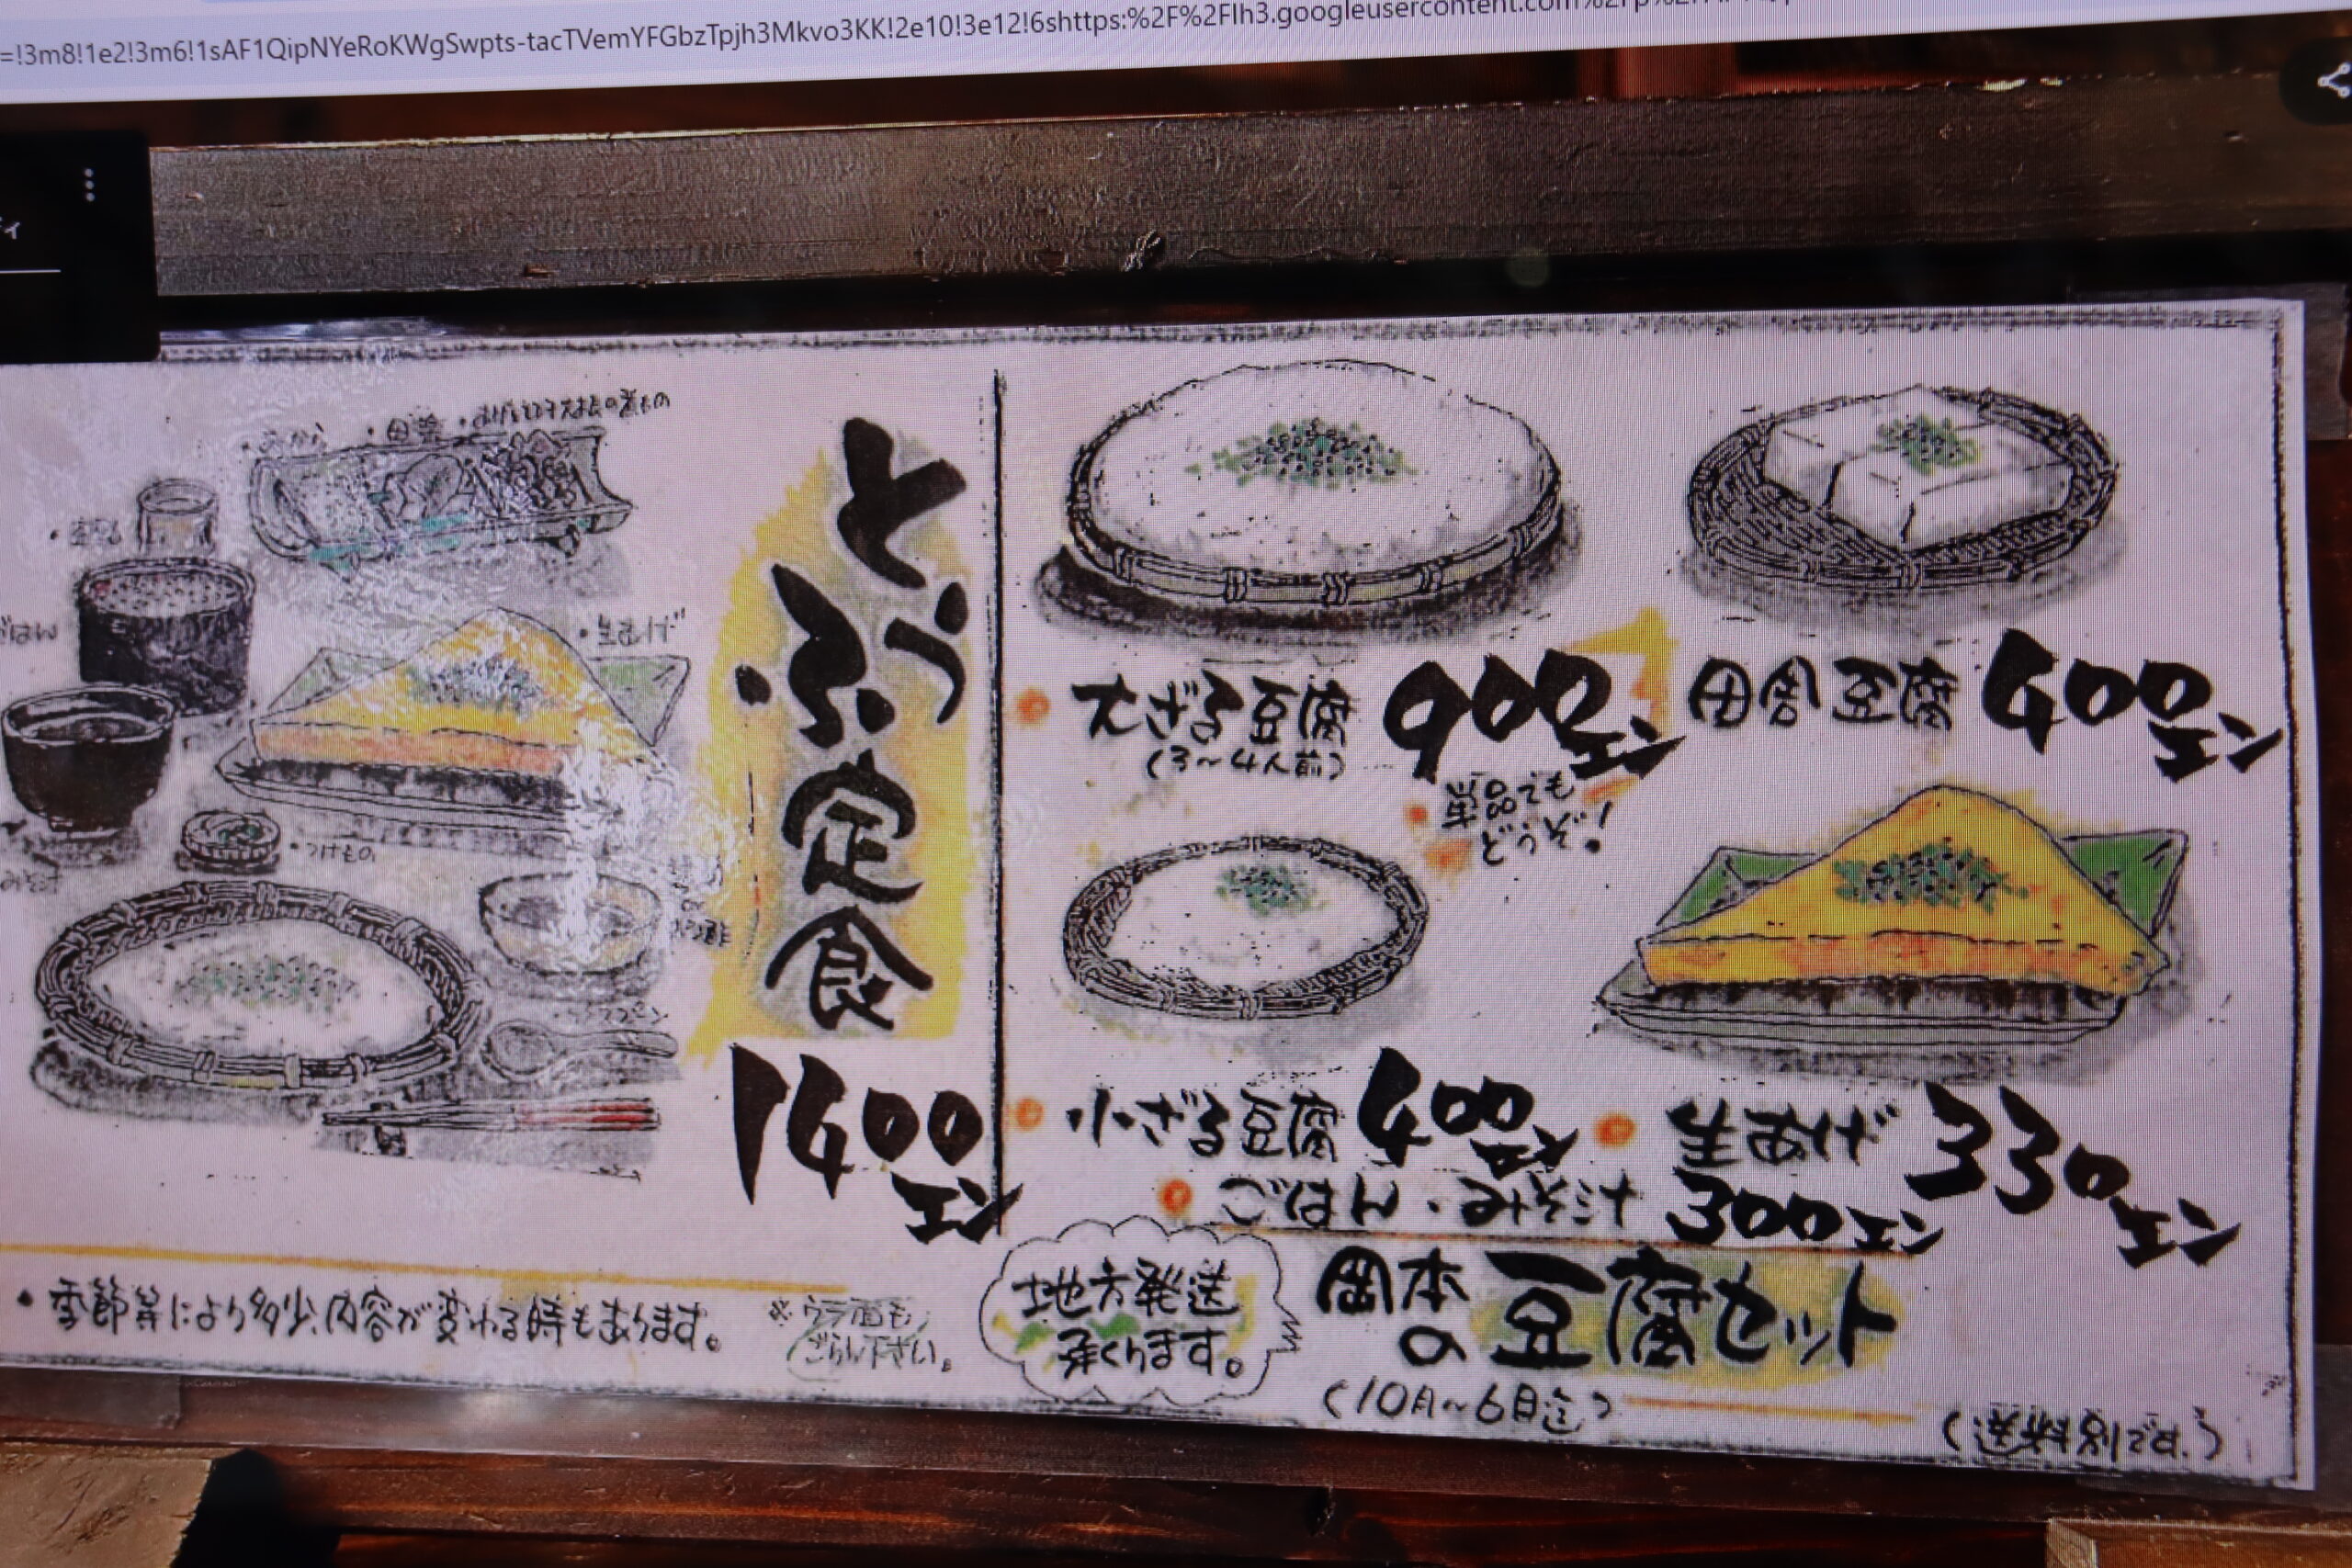 =!3m8!1e2!3m6!1sAF1QipNYeRoKWgSwpts-tacTVemYFGbzTpjh3Mkvo3KK!2e10!3e12!6shttps:%2F%2Flh3.googleusercontent.com
ィ
とうふ定食
1400エン
・生あげ
ごはん
・つけもの
みそ汁
・スプーン
大ざる豆腐 900エン
(3〜4人前)
田舎豆腐 400エン
単品でも
どうぞ!
小ざる豆腐 400エン
生あげ 330エン
ごはん・みそ汁 300エン
・季節等により多少、内容が変わる時もあります。
※ウラ面も
ごらん下さい。
地方発送
承ります。
岡本の豆腐セット
(10月〜6月迄)
(送料別です。)